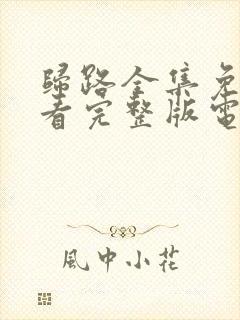 歸路全集免
看完整版電
風中小花